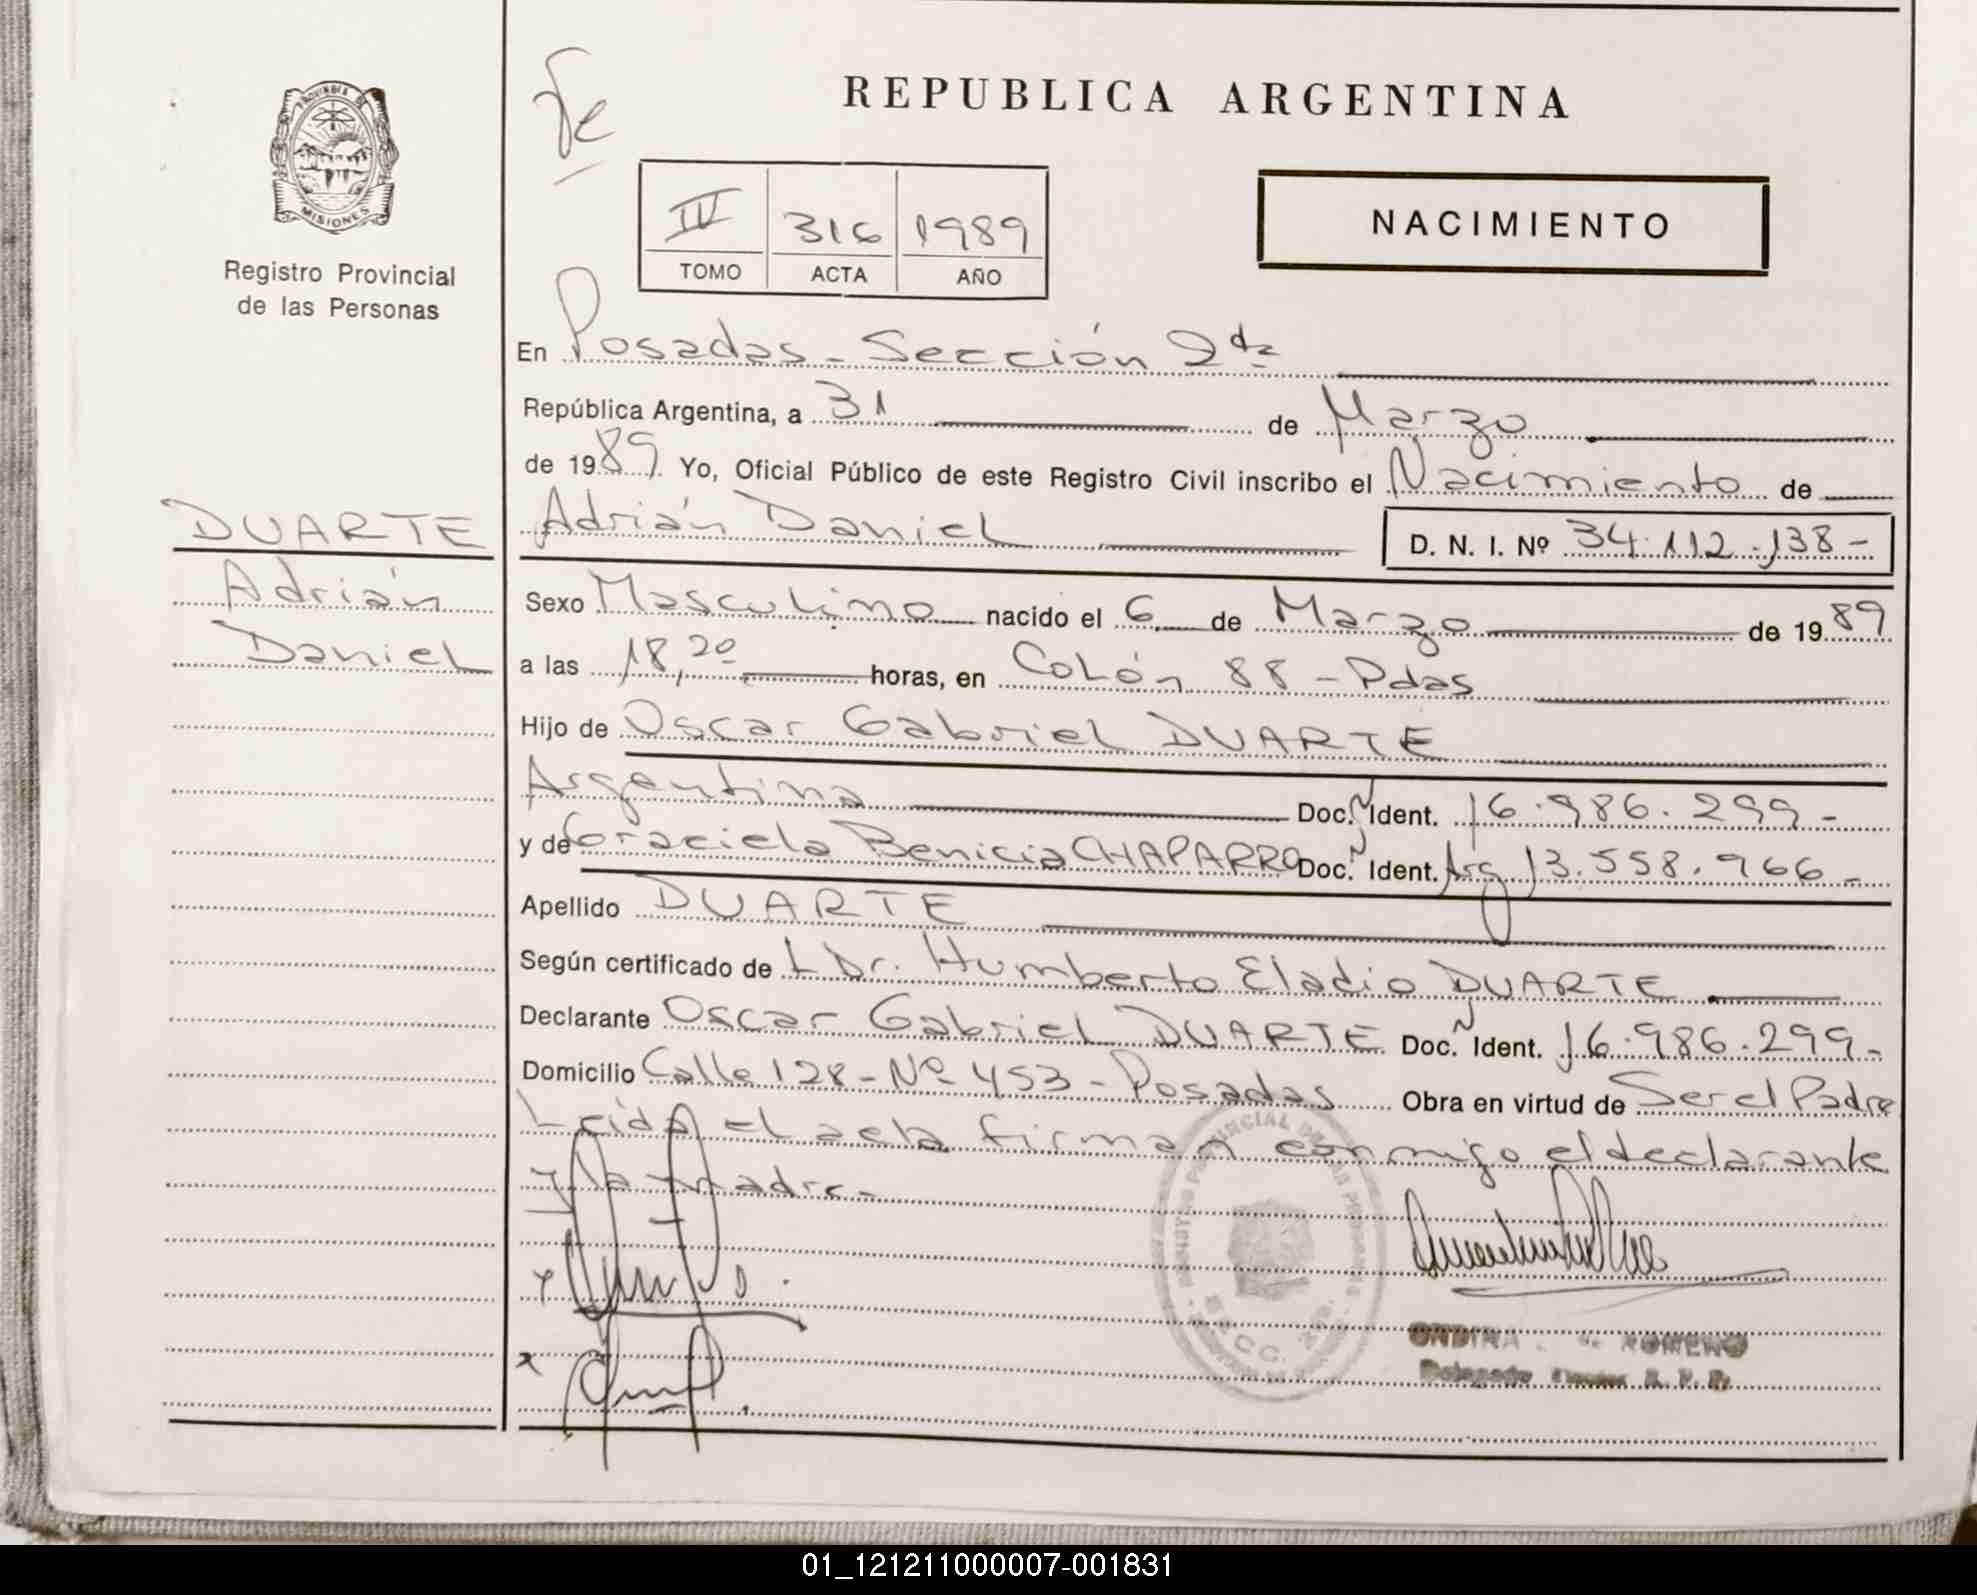 REPUBLICA ARGENTINA
PROVINCIA DE
MISIONES
Registro Provincial
de las Personas
IV 316 1989
TOMO ACTA AÑO
NACIMIENTO
En Posadas - Sección 2da
República Argentina, a 31 de Marzo
de 1989 Yo, Oficial Público de este Registro Civil inscribo el Nacimiento de
DUARTE
Adrián
Daniel
Adrián Daniel D. N. I. Nº 34.112.138-
Sexo Masculino nacido el 6 de Marzo de 1989
a las 18,20 horas, en Colón 88 - Pdas
Hijo de Oscar Gabriel DUARTE
Argentina Doc. Ident. 16.986.299-
y de Graciela Benicia CHAPARRO Doc. Ident. Arg 13.558.966-
Apellido DUARTE
Según certificado de L Dr. Humberto Eladio DUARTE
Declarante Oscar Gabriel DUARTE Doc. Ident. 16.986.299-
Domicilio Calle 128 - Nº 453 - Posadas Obra en virtud de Ser el Padre
Leída el acta firman conmigo el declarante
y la Madre-
ROMERO
Delegado R. P. P.
01_121211000007-001831